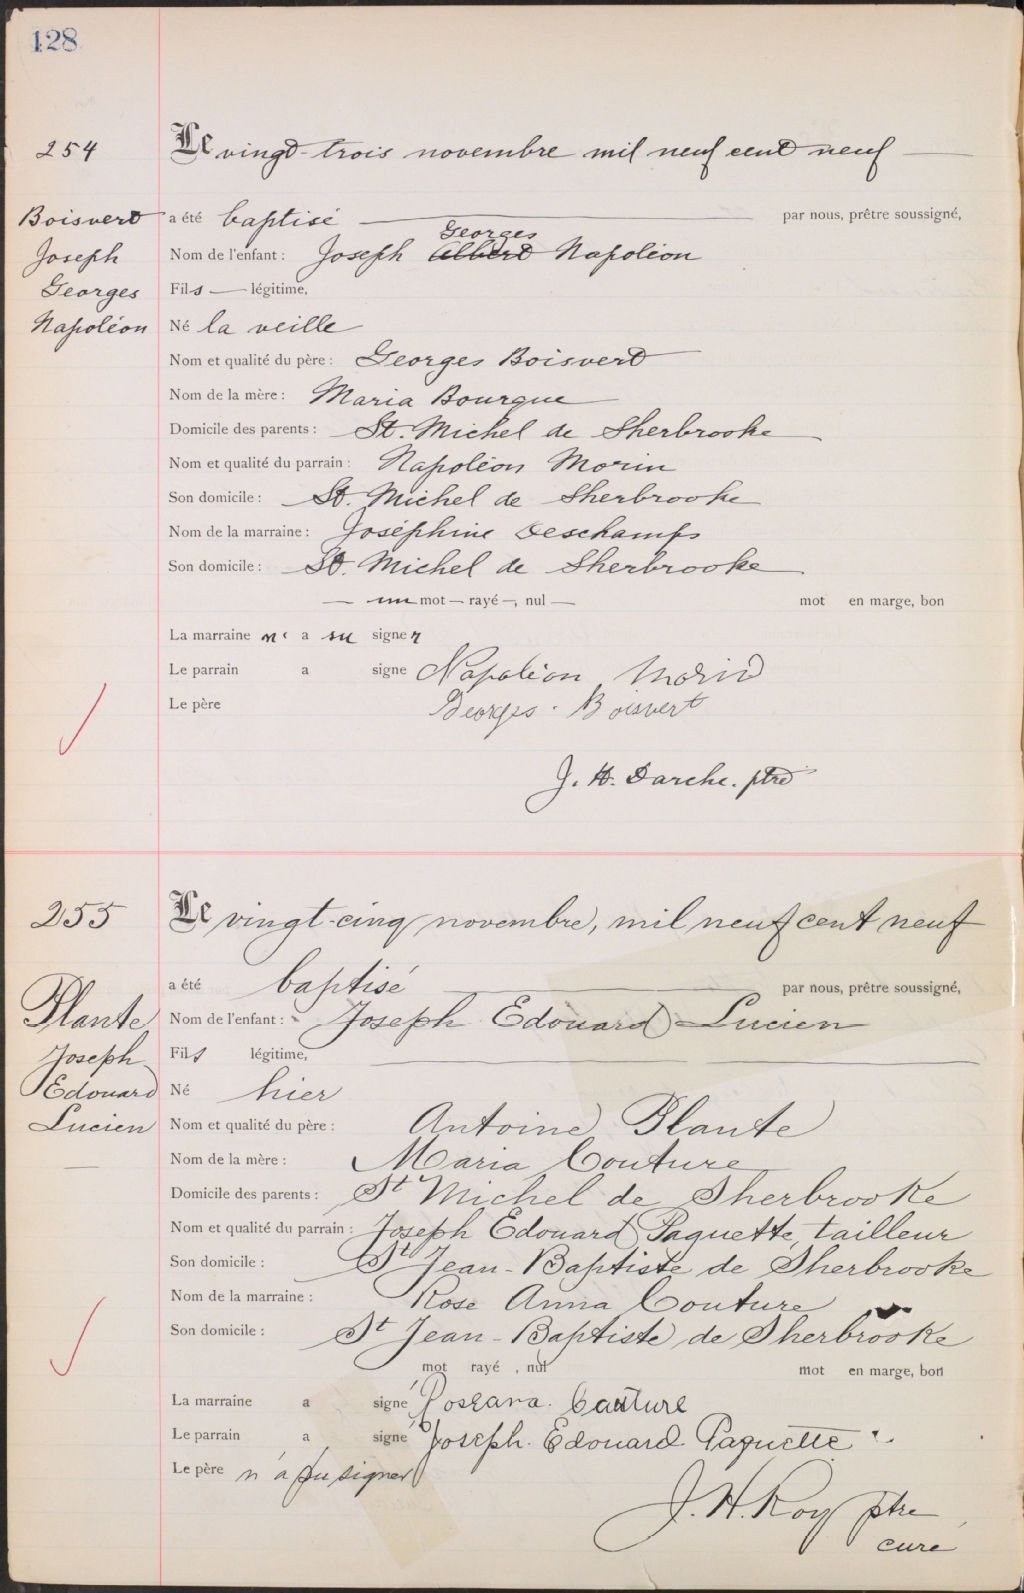 128
254
Le vingt-trois novembre mil neuf cent neuf
Boisvert
Joseph
Georges
Napoléon
a été baptisé par nous, prêtre soussigné,
Georges
Nom de l'enfant : Joseph Albert Napoléon
Fils légitime,
Né la veille
Nom et qualité du père : Georges Boisvert
Nom de la mère : Maria Bourque
Domicile des parents : St. Michel de Sherbrooke
Nom et qualité du parrain : Napoléon Morin
Son domicile : St. Michel de Sherbrooke
Nom de la marraine : Joséphine Deschamps
Son domicile : St. Michel de Sherbrooke
un mot rayé, nul mot en marge, bon
La marraine n' a su signer
Le parrain a signe Napoléon Morin
Le père Georges Boisvert
J. H. Darche. ptre
255
Le vingt-cinq novembre, mil neuf cent neuf
Plante
Joseph
Edouard
Lucien
a été baptisé par nous, prêtre soussigné,
Nom de l'enfant : Joseph Edouard Lucien
Fils légitime,
Né hier
Nom et qualité du père : Antoine Plante
Nom de la mère : Maria Couture
Domicile des parents : St Michel de Sherbrooke
Nom et qualité du parrain : Joseph Edouard Paquette, tailleur
Son domicile : St Jean-Baptiste de Sherbrooke
Nom de la marraine : Rose Anna Couture
Son domicile : St Jean-Baptiste de Sherbrooke
mot rayé , nul mot en marge, bon
La marraine a signé Roseana. Couture
Le parrain a signé Joseph. Edouard Paquette
Le père n'a pu signer
J. H. Roy ptre
curé